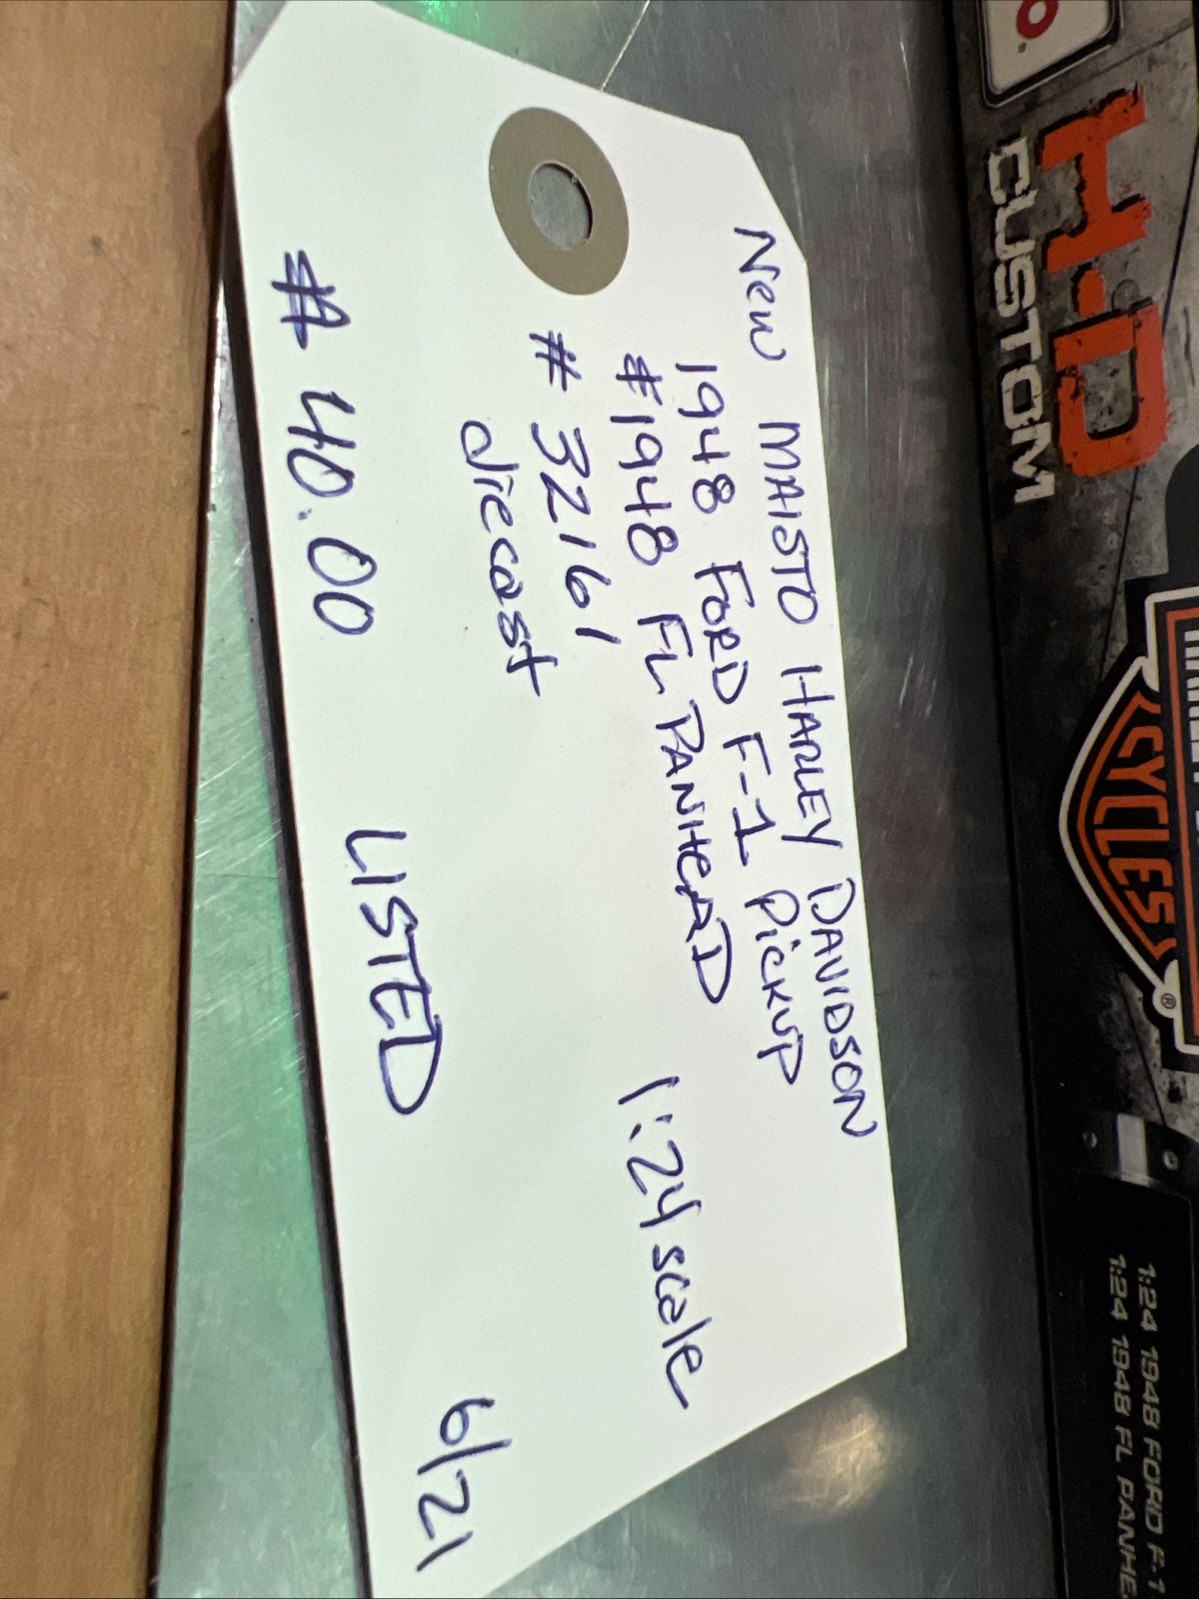 New MAISTO HARLEY DAVIDSON
1948 FORD F-1 Pickup
#1948 FL PANHEAD 1:24 scale
# 32161
diecast
# 40.00 LISTED 6/21
H-D
CUSTOM
CYCLES
®
1:24 1948 FORD F-1
1:24 1948 FL PANHE